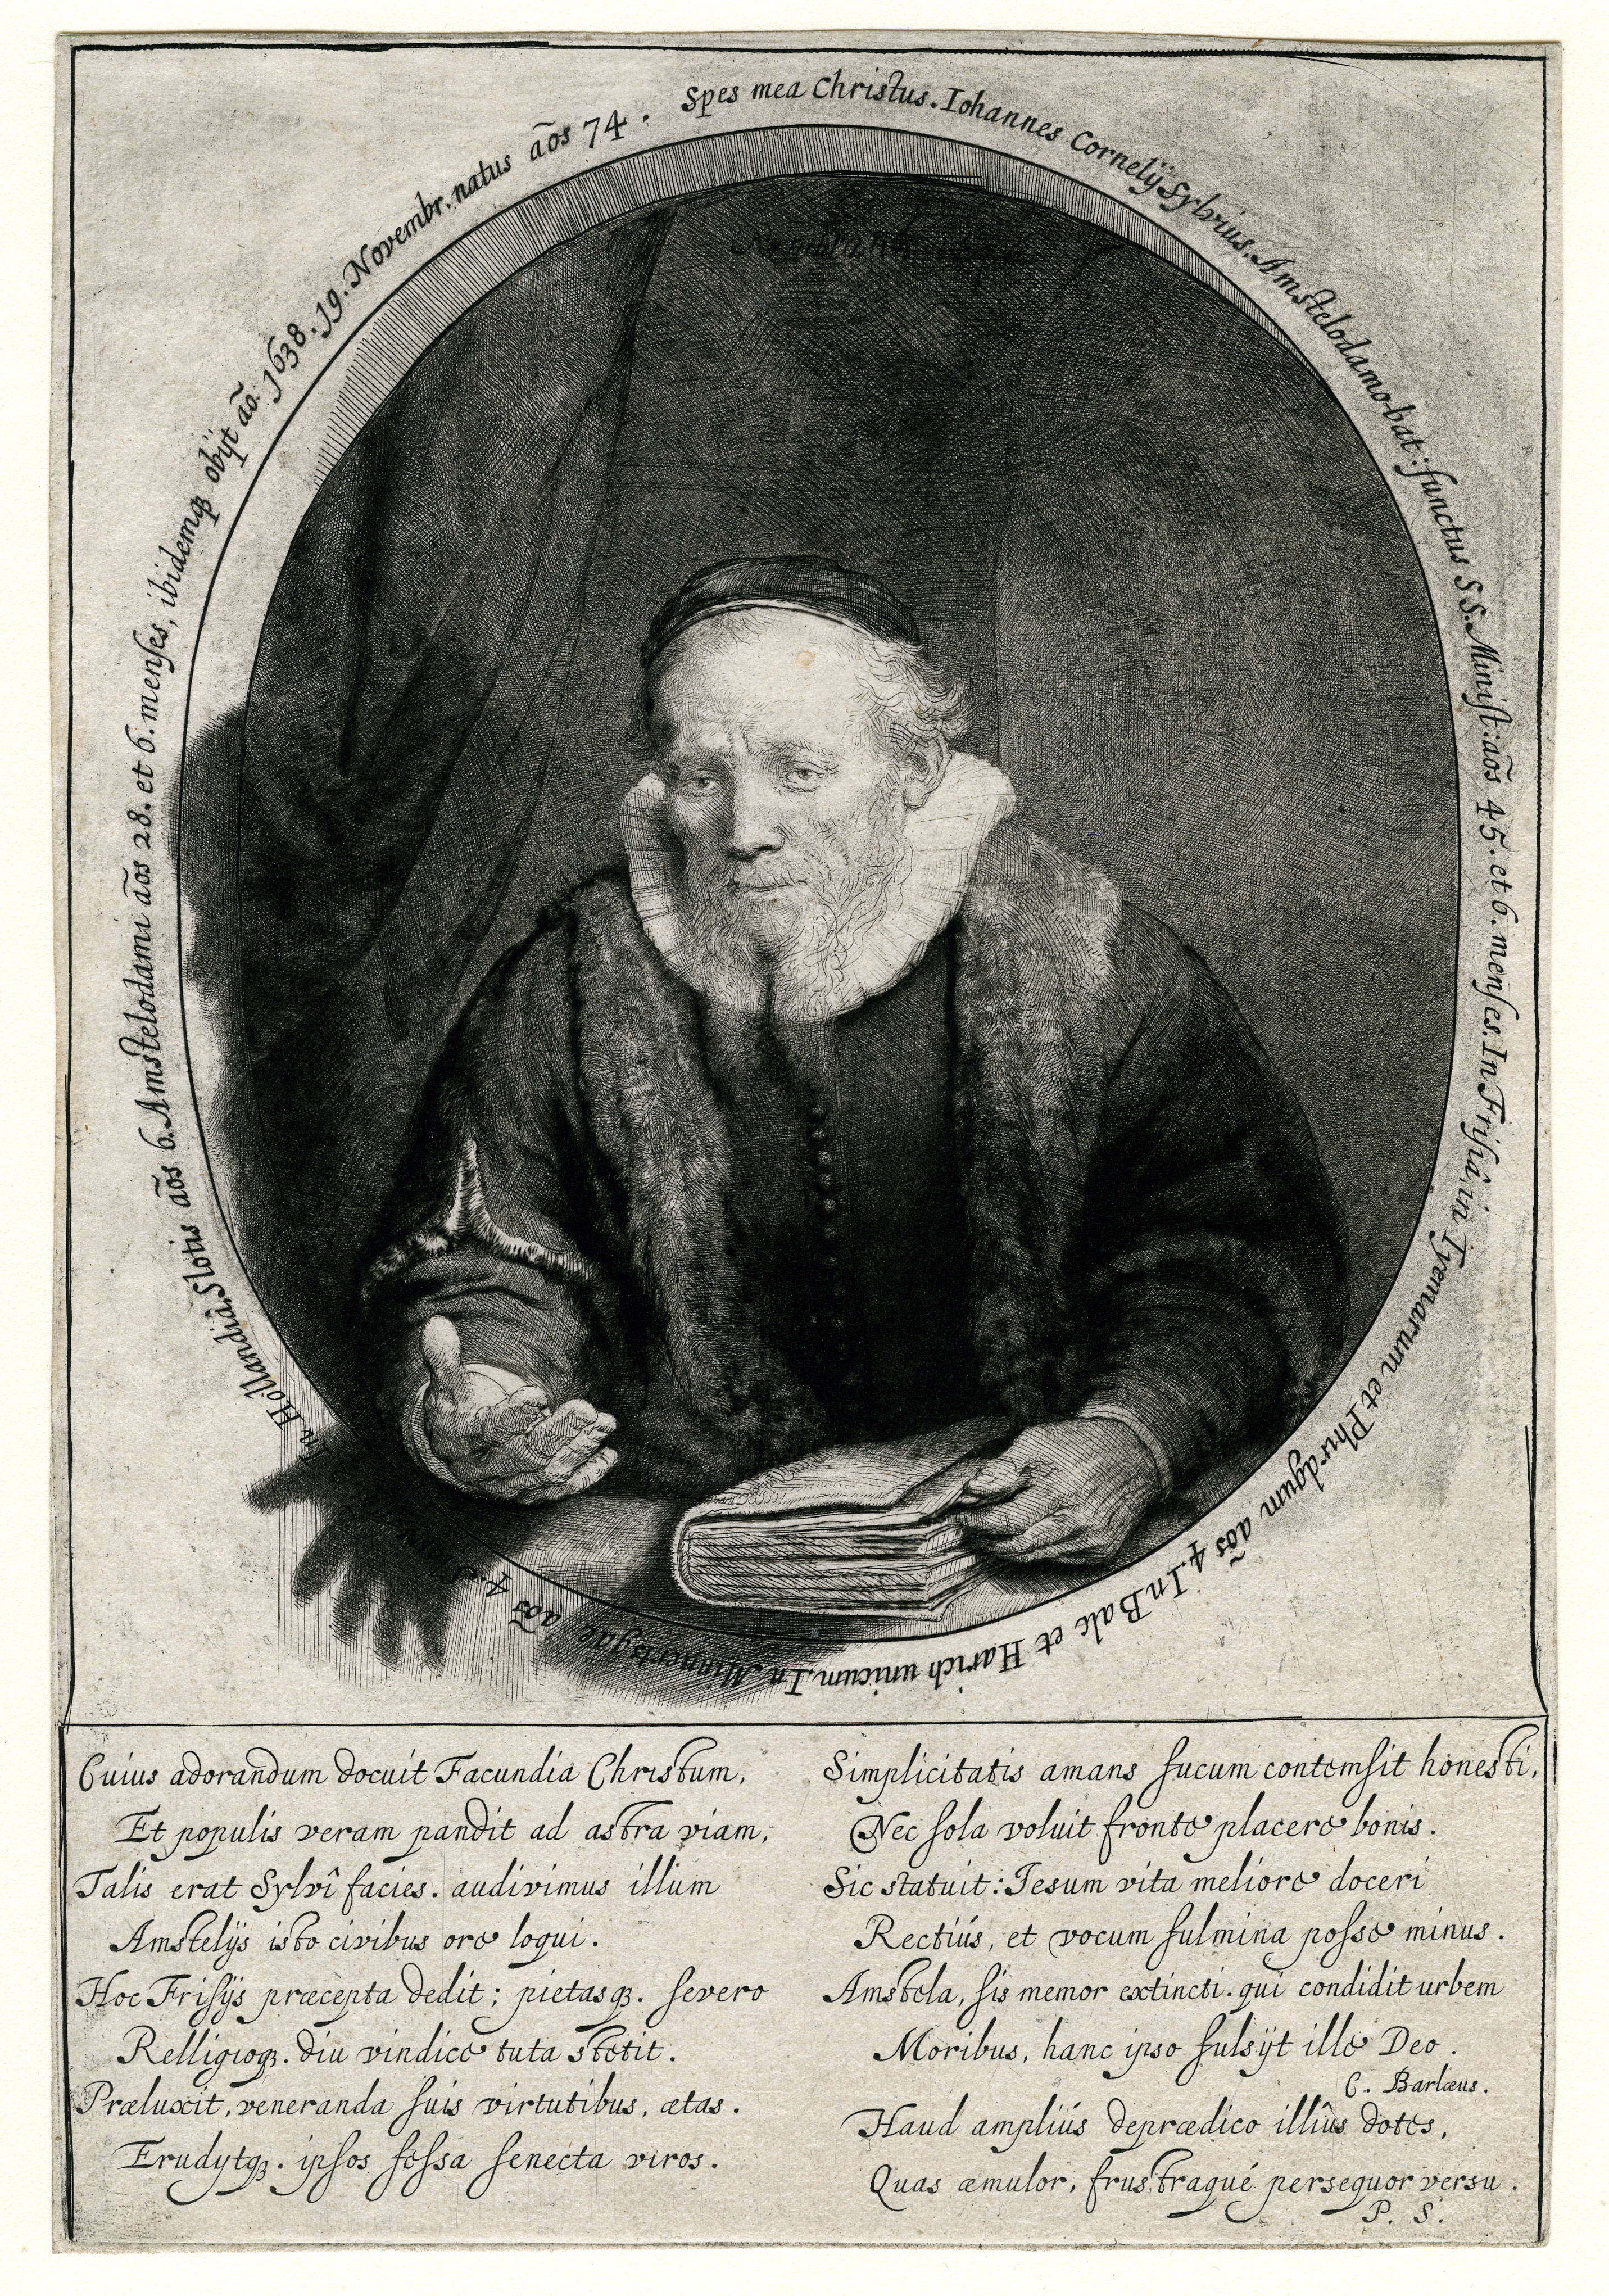 Spes mea Christus. Iohannes Cornelÿ Sylvius. Amstelodamo-bat: functus S S. Minist: aõs 45. et 6. menses. In Frisiâ, in Tyemarum et Phirdgum aõs 4. In Balc et Harich unicum. In Minnertsgae aõs 4. In Hollandiâ, Slotis aõs 6. Amstelodami aõs 28. et 6. menses, ibidemqꝫ obÿt aõ. 1638. 19. Novembr. natus aõs 74.
Cuius adorandum docuit Facundia Christum,
Et populis veram pandit ad astra viam,
Talis erat Sylvî facies. audivimus illum
Amstelÿs isto civibus ore loqui.
Hoc Frisÿs præcepta dedit; pietasqꝫ. severo
Relligioqꝫ. diu vindice tuta stetit.
Præluxit, veneranda suis virtutibus, ætas.
Erudytqꝫ. ipsos fessa senecta viros.
Simplicitatis amans fucum contemsit honesti,
Nec sola voluit fronte placere bonis.
Sic statuit: Iesum vita meliore doceri
Rectiús, et vocum fulmina posse minus.
Amstela, sis memor extincti. qui condidit urbem
Moribus, hanc ipso fulsÿt ille Deo.
C. Barlæus.
Haud ampliús deprædico illîus dotes,
Quas æmulor, frustraqué persequor versu.
P. S.